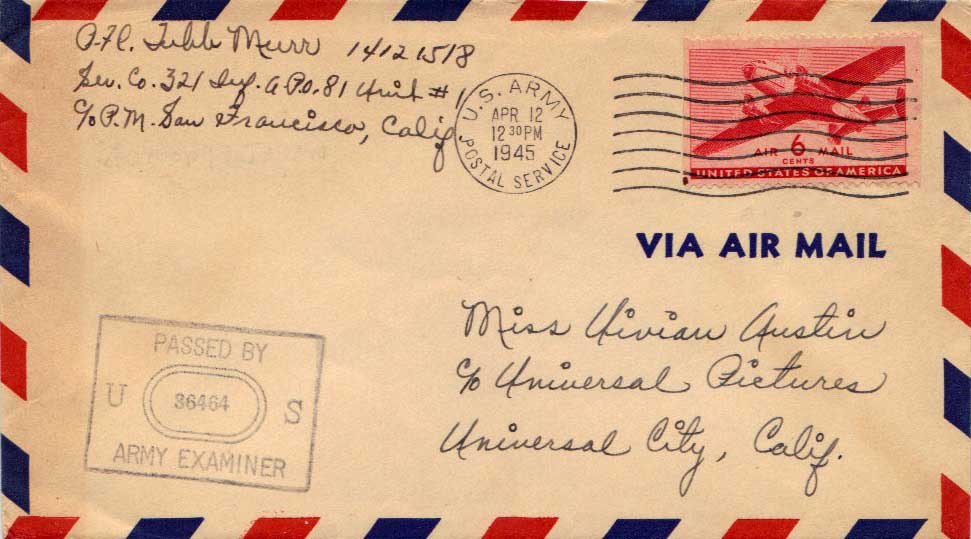 Pfc. Tubb Murr 14121518
Sev. Co. 321 Inf. A.P.O. 81 Unit #1
c/o P.M. San Francisco, Calif.
U.S. ARMY
APR 12
12 30 PM
1945
POSTAL SERVICE
AIR 6 MAIL
CENTS
UNITED STATES OF AMERICA
VIA AIR MAIL
Miss Vivian Austin
c/o Universal Pictures
Universal City, Calif.
PASSED BY
U 36464 S
ARMY EXAMINER